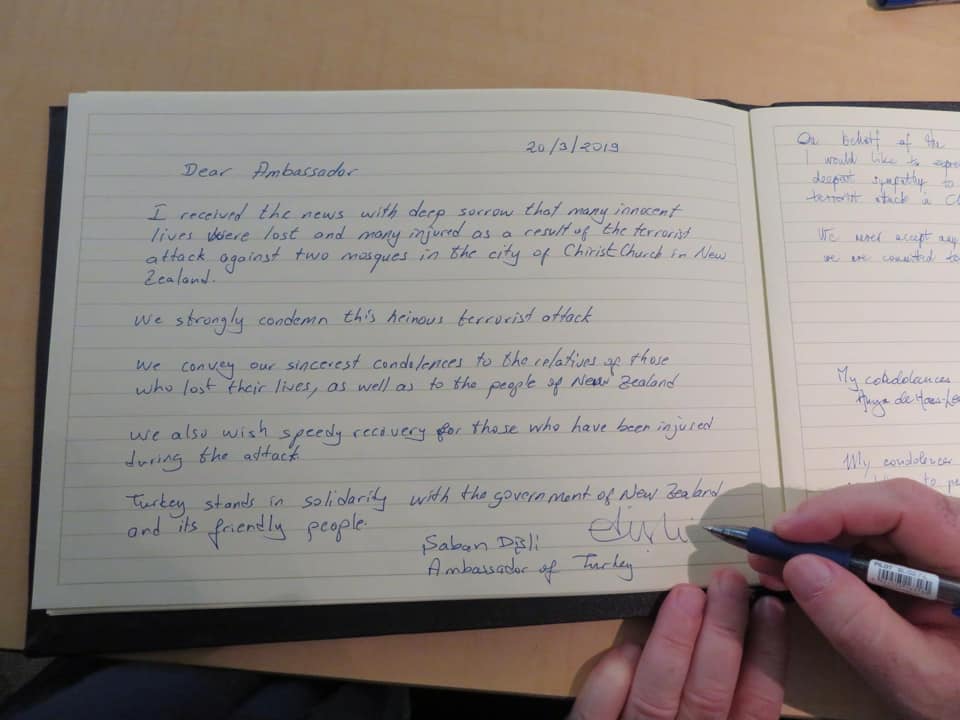 20/3/2019
Dear Ambassador
I received the news with deep sorrow that many innocent
lives were lost and many injured as a result of the terrorist
attack against two mosques in the city of ChiristChurch in New
Zealand.
We strongly condemn this heinous terrorist attack
We convey our sincerest condolences to the relatives of those
who lost their lives, as well as to the people of New Zealand
We also wish speedy recovery for those who have been injured
during the attack
Turkey stands in solidarity with the government of New Zealand
and its friendly people.
Şaban Dişli
Ambassador of Turkey
On behalf of the
I would like to
deepest sympathy to
terrorist attack
We never accept any
we are
My condolences
My condolences
PILOT